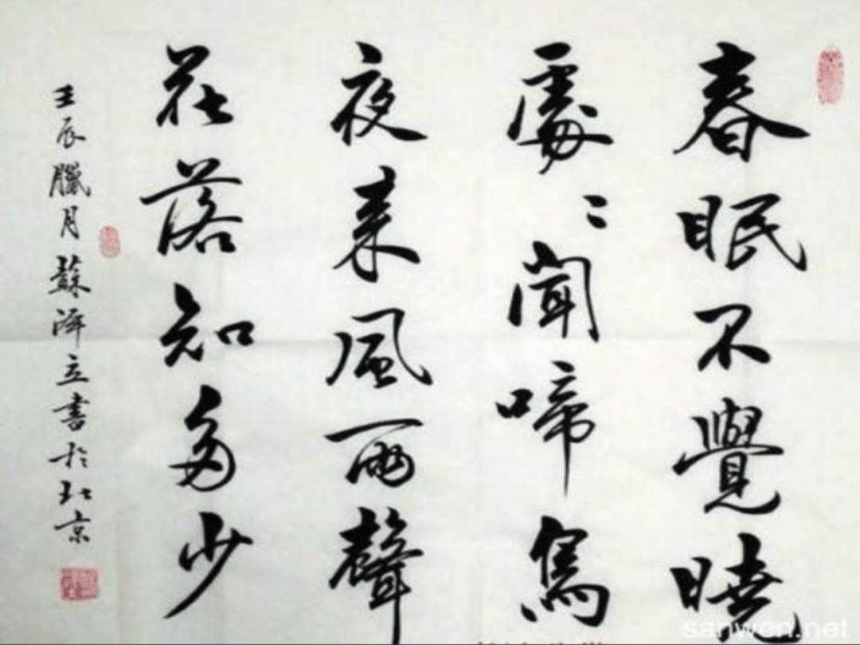 春眠不覺曉
處〻聞啼鳥
夜来風雨聲
花落知多少
壬辰臘月蘇澤立書於北京
sanwen.net